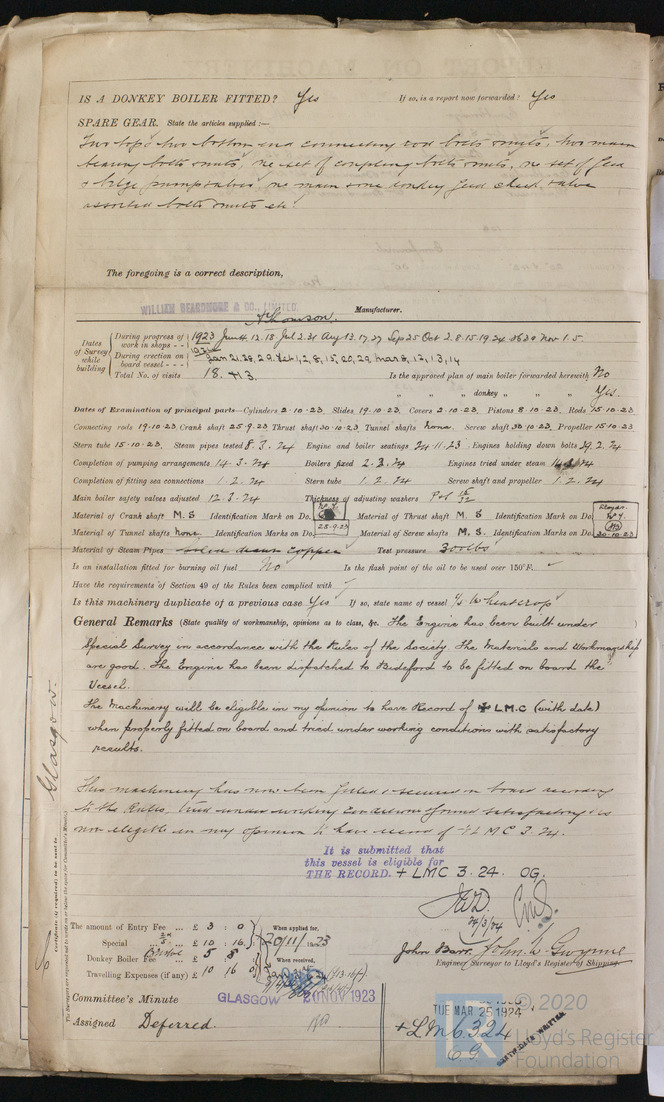 IS A DONKEY BOILER FITTED? Yes If so, is a report now forwarded? Yes
SPARE GEAR. State the articles supplied:—
Two top & two bottom end connecting rod bolts & nuts, two main
bearing bolts & nuts, one set of coupling bolts & nuts, one set of feed
& bilge pump valves, one main & one donkey feed check valve
assorted bolts & nuts etc.
The foregoing is a correct description,
WILLIAM BEARDMORE & CO., LIMITED
Manufacturer.
Dates of Survey while building
During progress of work in shops - - 1923 Jun 4. 12. 18. Jul 2. 31 Aug 13. 17. 27 Sep 25 Oct 2. 8. 15. 19. 24. 30 Nov 1. 5.
During erection on board vessel - - - Jan 21, 28, 29. Feb 1, 2, 8, 15, 20, 29, Mar 8, 12, 13, 14
Total No. of visits 18. + 13. Is the approved plan of main boiler forwarded herewith No
" " " donkey " " " Yes.
Dates of Examination of principal parts—Cylinders 2.10.23. Slides 19.10.23. Covers 2.10.23. Pistons 8.10.23. Rods 15.10.23
Connecting rods 19.10.23. Crank shaft 25.9.23 Thrust shaft 30.10.23. Tunnel shafts none. Screw shaft 30.10.23. Propeller 15.10.23
Stern tube 15.10.23. Steam pipes tested 8.3.24 Engine and boiler seatings 24.11.23. Engines holding down bolts 29.2.24
Completion of pumping arrangements 14.3.24 Boilers fixed 2.3.24 Engines tried under steam 14.3.24
Completion of fitting sea connections 1.2.24 Stern tube 1.2.24 Screw shaft and propeller 1.2.24
Main boiler safety valves adjusted 12.3.24 Thickness of adjusting washers
Material of Crank shaft M.S Identification Mark on Do. 25.9.23 Material of Thrust shaft M.S Identification Mark on Do. Lloyds.
Material of Tunnel shafts none. Identification Marks on Do. Material of Screw shafts M.S. Identification Marks on Do. 30.10.23
Material of Steam Pipes solid drawn copper Test pressure 300 lbs
Is an installation fitted for burning oil fuel No Is the flash point of the oil to be used over 150°F.
Have the requirements of Section 49 of the Rules been complied with
Is this machinery duplicate of a previous case Yes If so, state name of vessel s/s Wheatcrop
General Remarks (State quality of workmanship, opinions as to class, &c. The Engine has been built under
Special Survey in accordance with the Rules of the Society. The Materials and Workmanship
are good. The Engine has been dispatched to Bideford to be fitted on board the
Vessel.
The Machinery will be eligible in my opinion to have Record of ✠ LMC (with date)
when properly fitted on board and tried under working conditions with satisfactory
results.
This machinery has now been fitted & secured on board according
to the Rules. Tried under working conditions & found satisfactory & is
now eligible in my opinion to have record of + LMC 3.24.
It is submitted that
this vessel is eligible for
THE RECORD. + LMC 3.24. OG.
24/3/24
Glasgow.
Certificate (if required) to be sent to
The amount of Entry Fee ... £ 3 : 0 When applied for,
Special ... £ 10 : 16 20/11/1923
Donkey Boiler Fee ... £ 5 : 8 When received,
Travelling Expenses (if any) £ 10 16
John Barr. John W Gwynne
Engineer Surveyor to Lloyd's Register of Shipping.
Committee's Minute GLASGOW 20 NOV 1923
Assigned Deferred
TUE MAR 25 1924
+ LMC 3.24
CERTIFICATE WRITTEN
© 2020
Lloyd's Register
Foundation